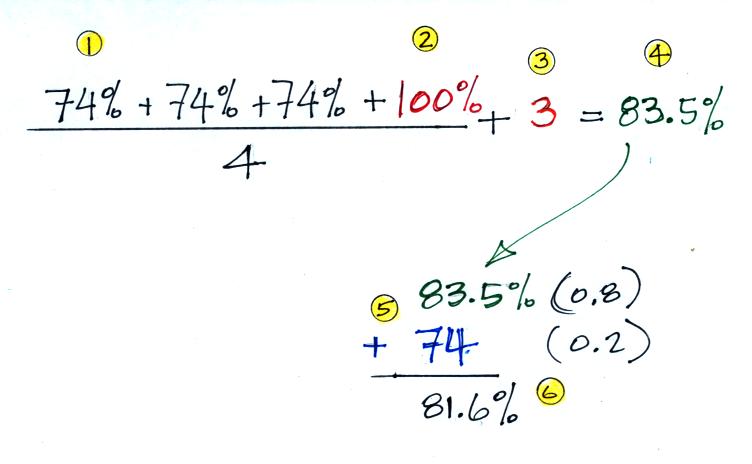 ① ② ③ ④
74% + 74% + 74% + 100% + 3 = 83.5%
4
83.5% (0.8)
⑤ + 74 (0.2)
81.6% ⑥